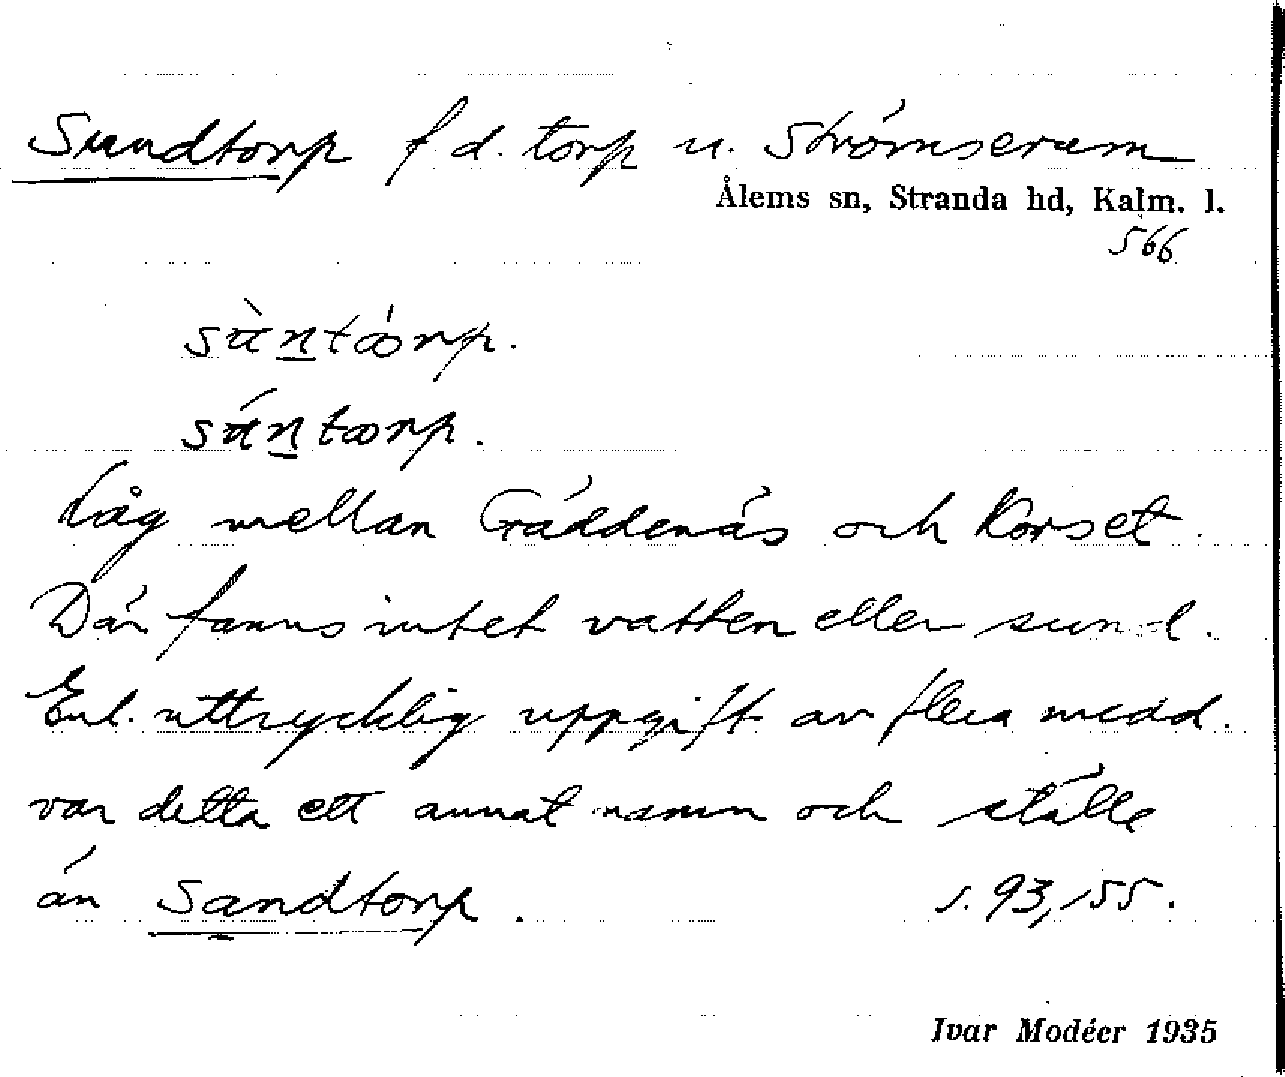 Sundtorp f.d. torp u. Strömserum
Ålems sn, Stranda hd, Kalm. l.
566
sùntǿrp.
súntorp.
Låg mellan Gäddenäs och Korset.
Där fanns intet vatten eller sund.
Enl. uttrycklig uppgift av flera medd.
var detta ett annat namn och ställe
än Sandtorp. s. 93, 155.
Ivar Modéer 1935